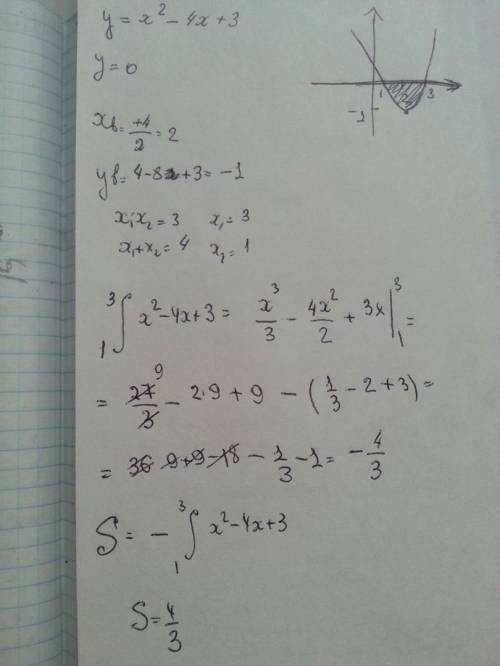 y = x² − 4x + 3
y = 0
xв = +4/2 = 2
yв = 4 − 8 + 3 = −1
x₁·x₂ = 3 x₁ = 3
x₁ + x₂ = 4 x₂ = 1
1 2 3
−1
₁³∫ x² − 4x + 3 = x³/3 − 4x²/2 + 3x |₁³ =
= 27/3 9 − 2·9 + 9 − (1/3 − 2 + 3) =
= 36 9 + 9 − 18 − 1/3 − 1 = −4/3
S = − ₁³∫ x² − 4x + 3
S = 4/3